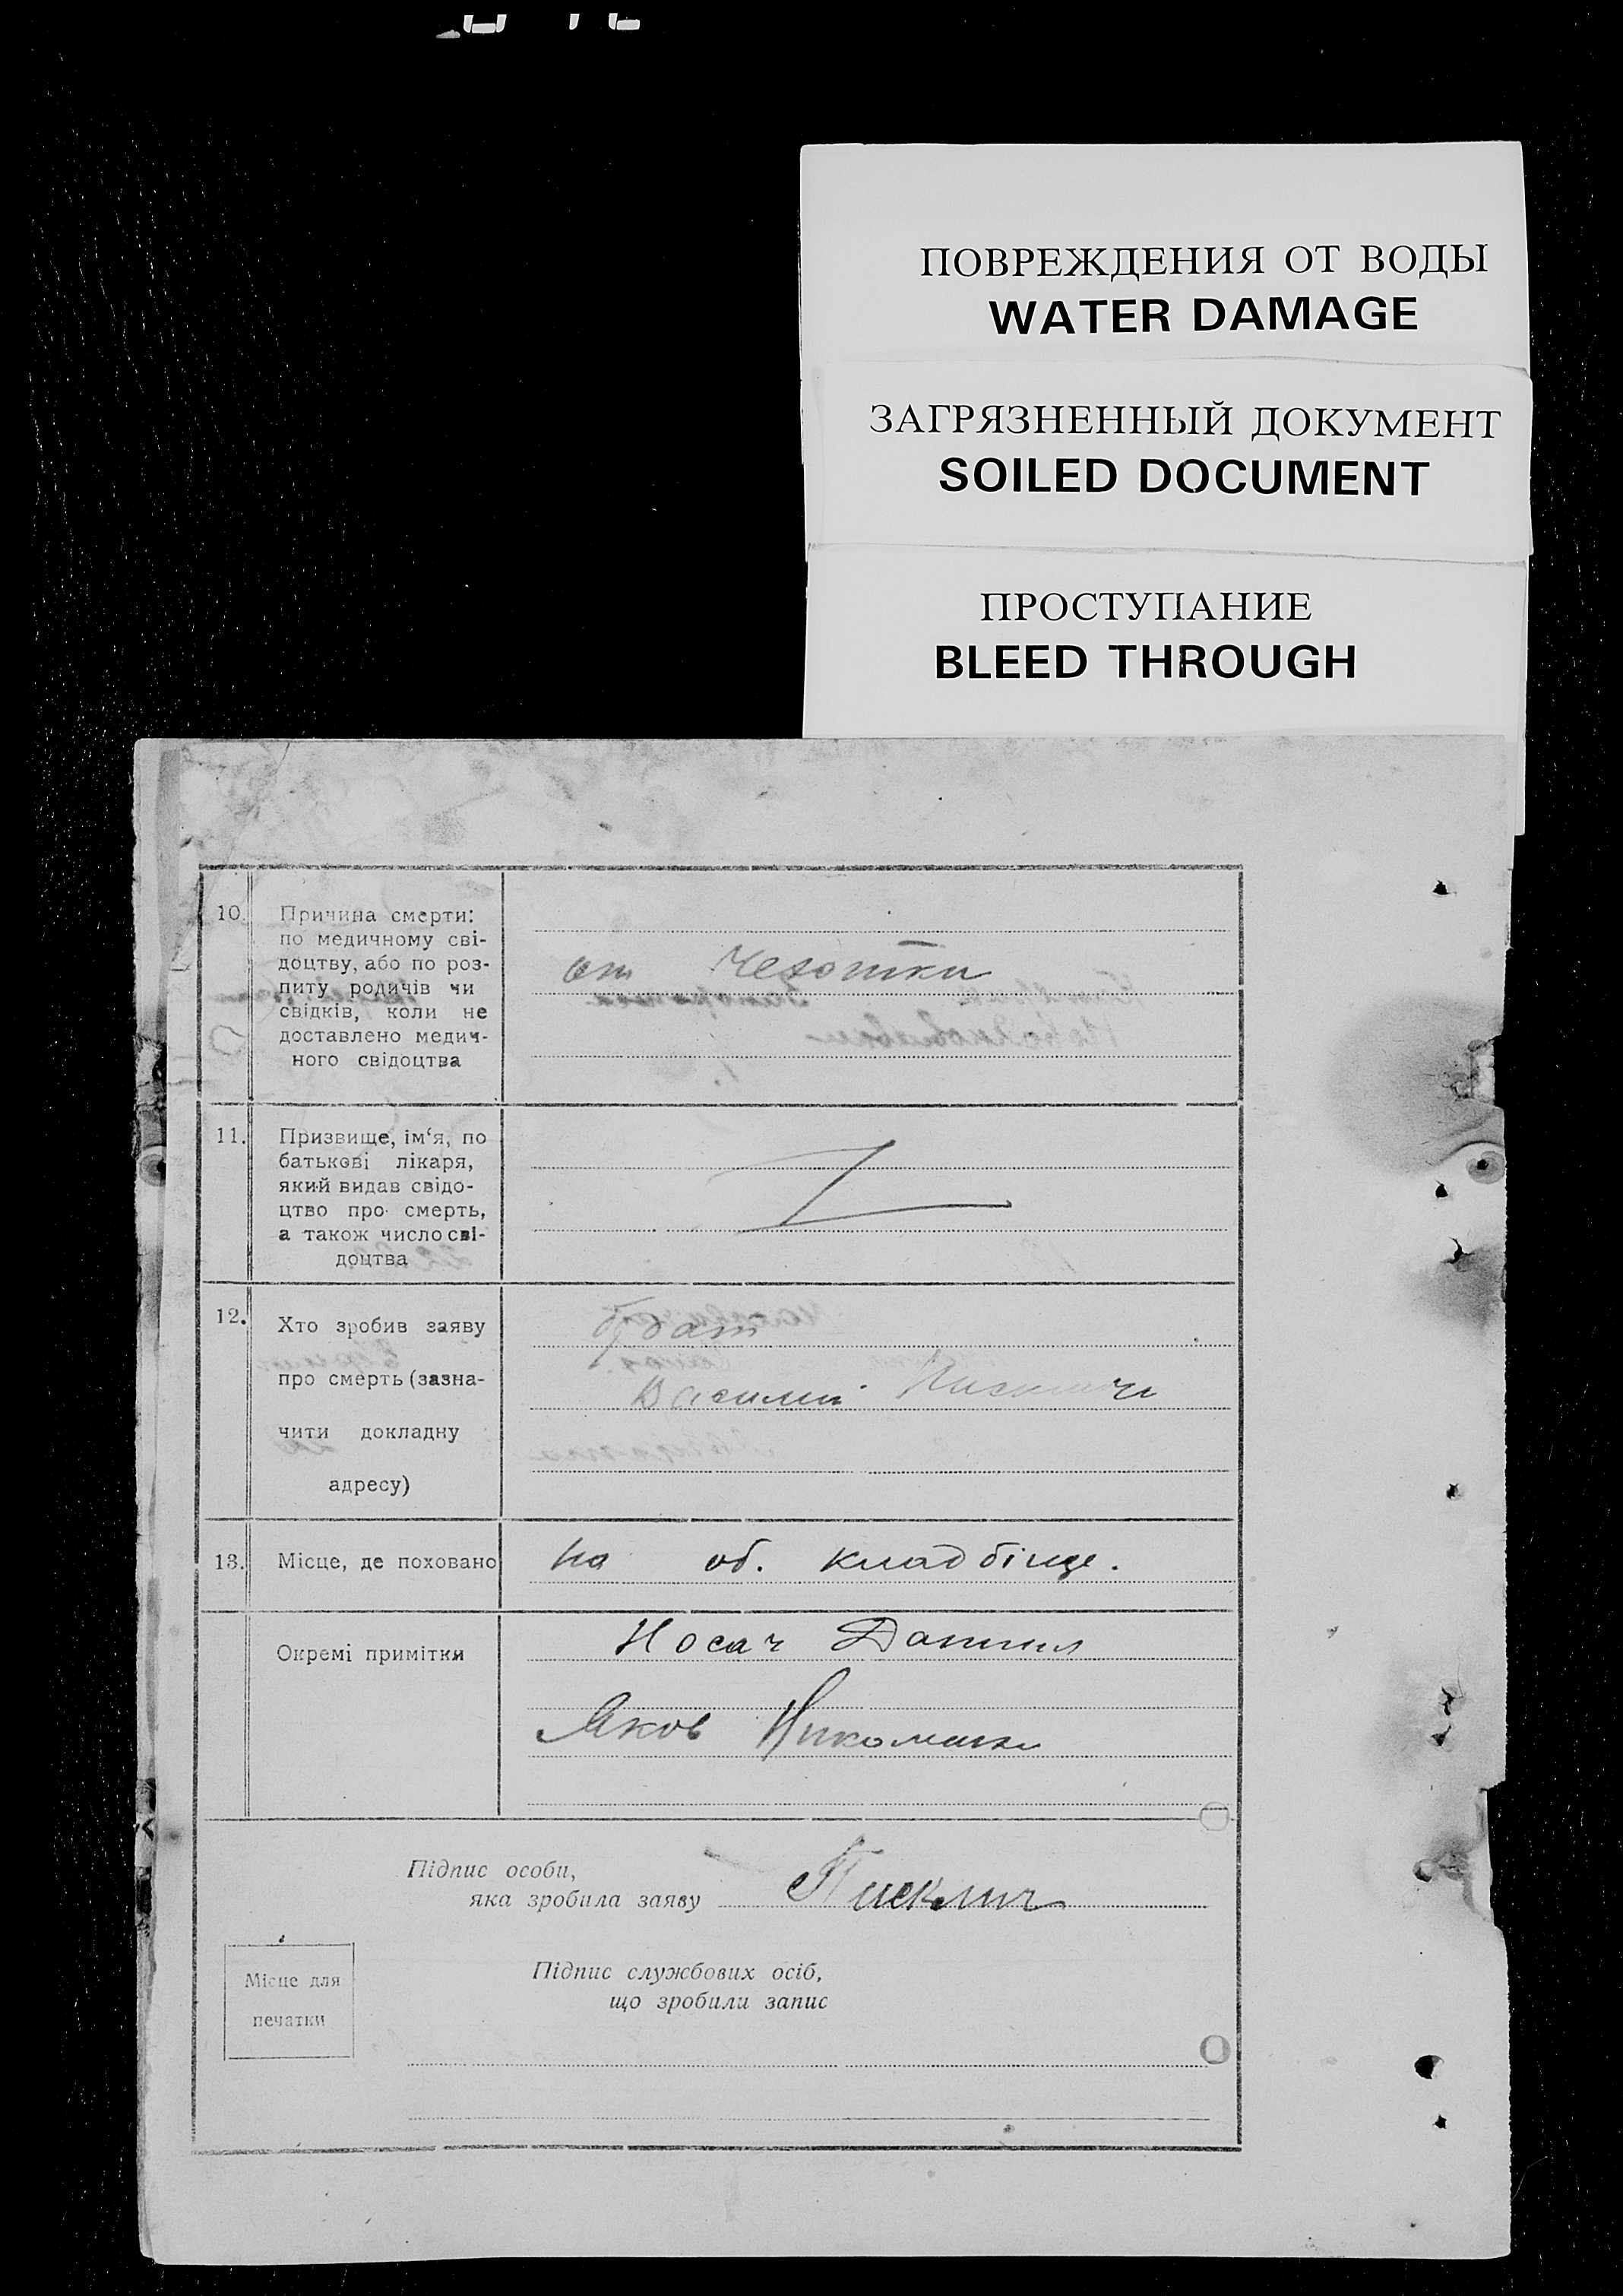 ПОВРЕЖДЕНИЯ ОТ ВОДЫ
WATER DAMAGE
ЗАГРЯЗНЕННЫЙ ДОКУМЕНТ
SOILED DOCUMENT
ПРОСТУПАНИЕ
BLEED THROUGH
10. Причина смерти:
по медичному сві-
доцтву, або по роз-
питу родичів чи
свідків, коли не
доставлено медич-
ного свідоцтва
от Чехотки
11. Призвище, ім‘я, по
батькові лікаря,
який видав свідо-
цтво про смерть,
а також число сві-
доцтва
12. Хто зробив заяву
про смерть (зазна-
чити докладну
адресу)
брат
Василий
13. Місце, де поховано
на об. кладбіще.
Окремі примітки
Носач Данило
Яков
Підпис особи,
яка зробила заяву
Місце для
печатки
Підпис службових осіб,
що зробили запис